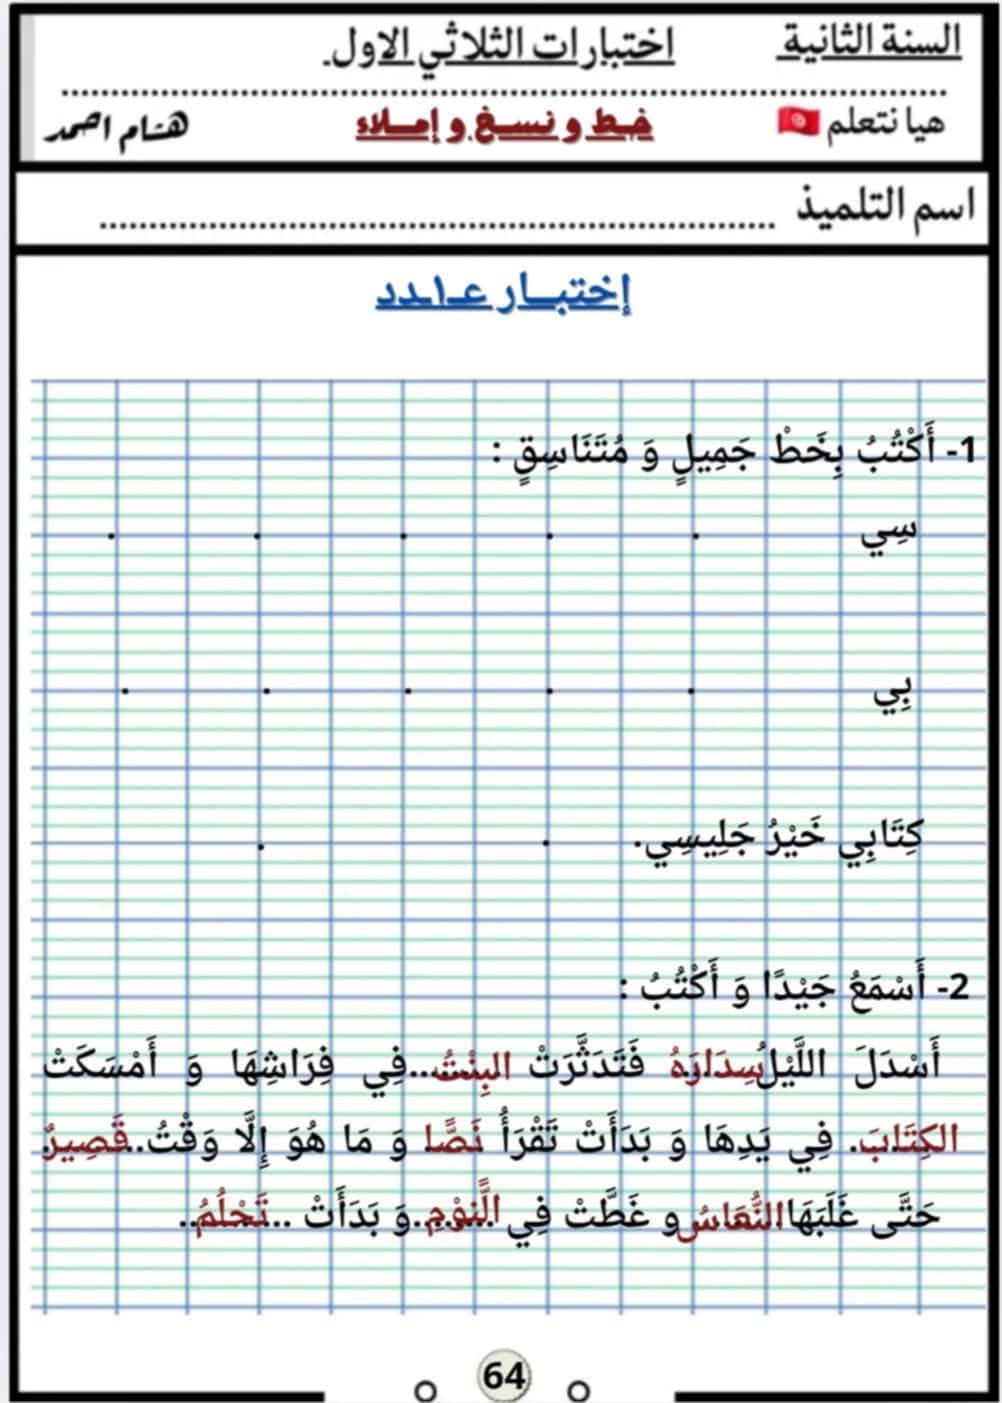 السنة الثانية اختبارات الثلاثي الاول.
هيا نتعلم خط و نسخ و إملاء هشام احمد
اسم التلميذ
إختبار عـ1ـدد
1- أَكْتُبُ بِخَطْ جَمِيلٍ وَ مُتَنَاسِقٍ :
سِي . . . . .
بِي . . . . .
كِتَابِي خَيْرُ جَلِيسِي. . .
2- أَسْمَعُ جَيْدًا وَ أَكْتُبُ :
أَسْدَلَ اللَّيْلُ سِدَارَهُ فَتَدَثَّرَتْ البِنْتُ..فِي فِرَاشِهَا وَ أَمْسَكَتْ
الكِتَابَ. فِي يَدِهَا وَ بَدَأَتْ تَقْرَأُ نَصًّا وَ مَا هُوَ إِلَّا وَقْتُ..قَصِيرٌ
حَتَّى غَلَبَهَا النُّعَاسُ و غَطَّتْ فِي الَّنوْمِ..وَ بَدَأَتْ ..تَحْلُمُ..
64